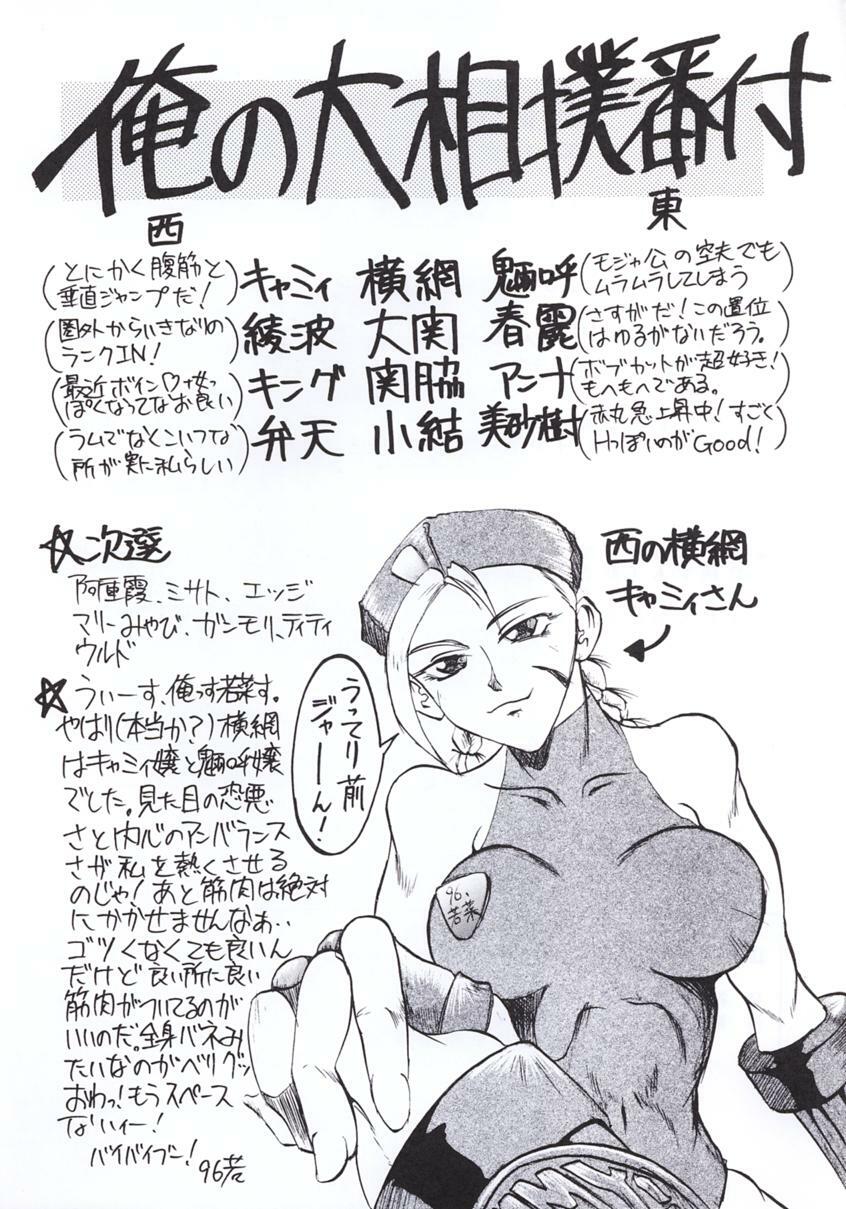 俺の大相撲番付
西
東
(とにかく腹筋と
垂直ジャンプだ!)
キャミィ 横綱 魎呼
(モジャ公の空夫でも
ムラムラしてしまう)
(圏外からいきなりの
ランクIN!)
綾波 大関 春麗
(さすがだ!この置位
はゆるがないだろう。)
(最近ボイン♡女っ
ぽくなってなお良い)
キング 関脇 アンナ
(ボブカットが超好き!
もへもへである。)
(ラムでなくこいつな
所が実に私らしい)
弁天 小結 美紗樹
(赤丸急上昇中!すごく
HっぽいのがGood!)
☆次選
阿重霞、ミサト、エッジ
マリーみやび、ガンモリ、ティティ
ウルド
西の横綱
キャミィさん
☆うぃーす、俺っす若菜す。
やはり(本当か?)横綱
はキャミィ嬢と魎呼嬢
でした。見た目の恐悪
さと内心のアンバランス
さが私を熱くさせる
のじゃ!あと筋肉は絶対
にかかせませんなぁ‥
ゴツくなくても良いん
だけど良い所に良い
筋肉がついてるのが
いいのだ。全身バネみ
たいなのがベリグッ
おわっ!もうスペース
ないィー!
バイバイブー!
96若
うってり前
ジャーーん!
96、
若菜